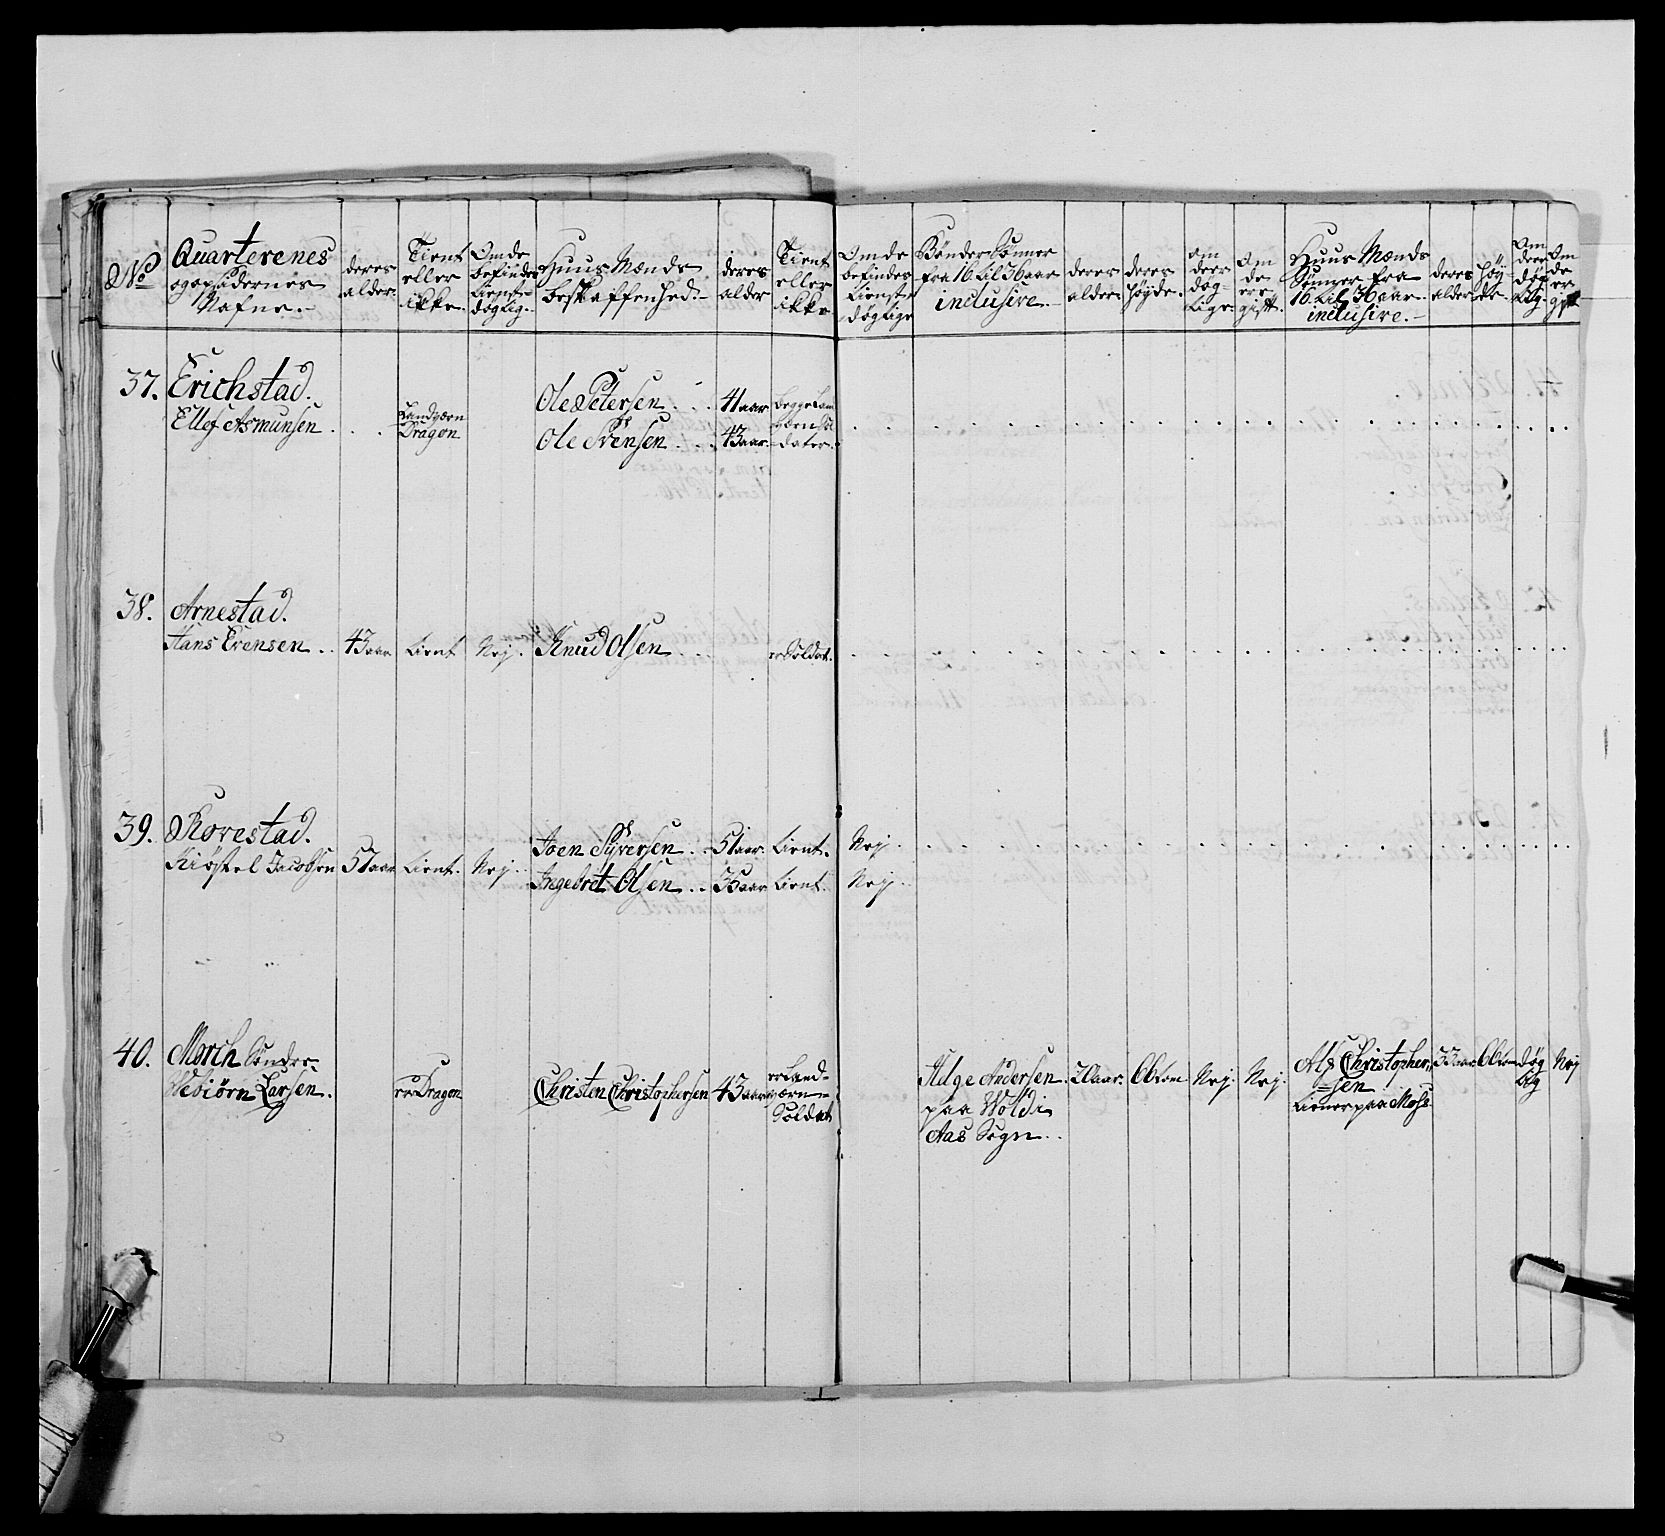 No
Quarterenes
ogopsidernes
Nafne.
deres
alder.
Tient
eller
ikke.
Om de
befindes
tienst-
døgtig.
Huus Mænds
beskaffenhed.
deres
alder
Tient
eller
ikke
Om de
befindes
tienst
døgtige
Bønder Sønner
fra 16 til 36 aar
inclusive
deres
alder.
deres
høyde.
om
deer
døg-
tige.
Om
de
ere
gift.
Huus Mænds
Sønner fra
16 til 36 aar.
inclusive.
deres
alder
høy-
de
Om
deer
døg-
tig.
Om
de
er
gift
37. Erichstad.
Ellef Asmunsen
Landværn
Dragon
Ole Petersen 41 aar
Ole Svensen 43 aar.
begge Lan
værn Sol
dater.
38. Arnestad.
Hans Evensen 43 aar tient Nej. Knud Olsen er Soldat.
39. Skovestad.
Kiøstel Jacobsen 57 aar tient. Nej.
Joen Syversen 51 aar. tient. Nej.
Ingebret Olsen 36 aar tient Nej.
40. Morch Sønder.
Vebiørn Larsen.
er Dragon
Christen Christophersen 43 aar
er Land-
værn-
Soldat
Helge Andersen
paa Woldi
Aas Sogn.
20 aar. 66 tom Nej. Nej.
Alf Christopher
sen
tiener paa Moss
33 aar 66 tom døg
tig
Nej